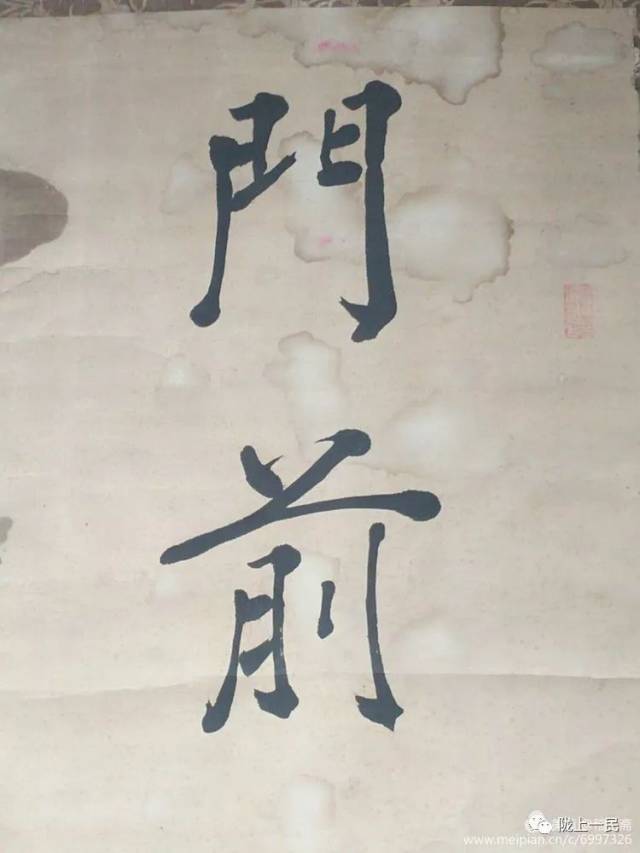 門
前
陇上一民
www.meipian.cn/c/6997326